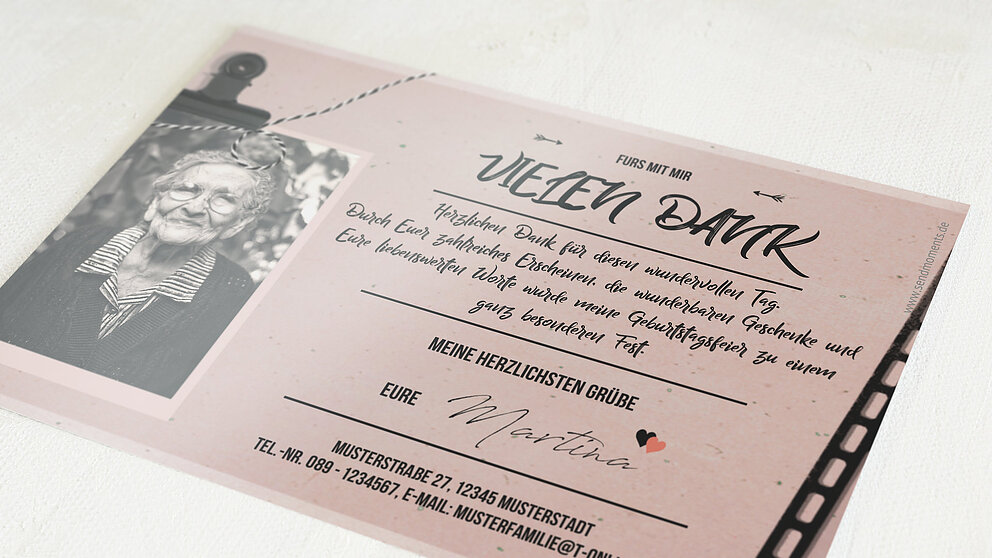 FURS MIT MIR
VIELEN DANK
Herzlichen Dank für diesen wundervollen Tag.
Durch Euer zahlreiches Erscheinen, die wunderbaren Geschenke und
Eure liebenswerten Worte wurde meine Geburtstagsfeier zu einem
ganz besonderen Fest.
MEINE HERZLICHSTEN GRÜßE
EURE Martina
MUSTERSTRAßE 27, 12345 MUSTERSTADT
TEL. -NR. 089 - 1234567, E-MAIL: MUSTERFAMILIE@T-ONLI
www.sendmoments.de